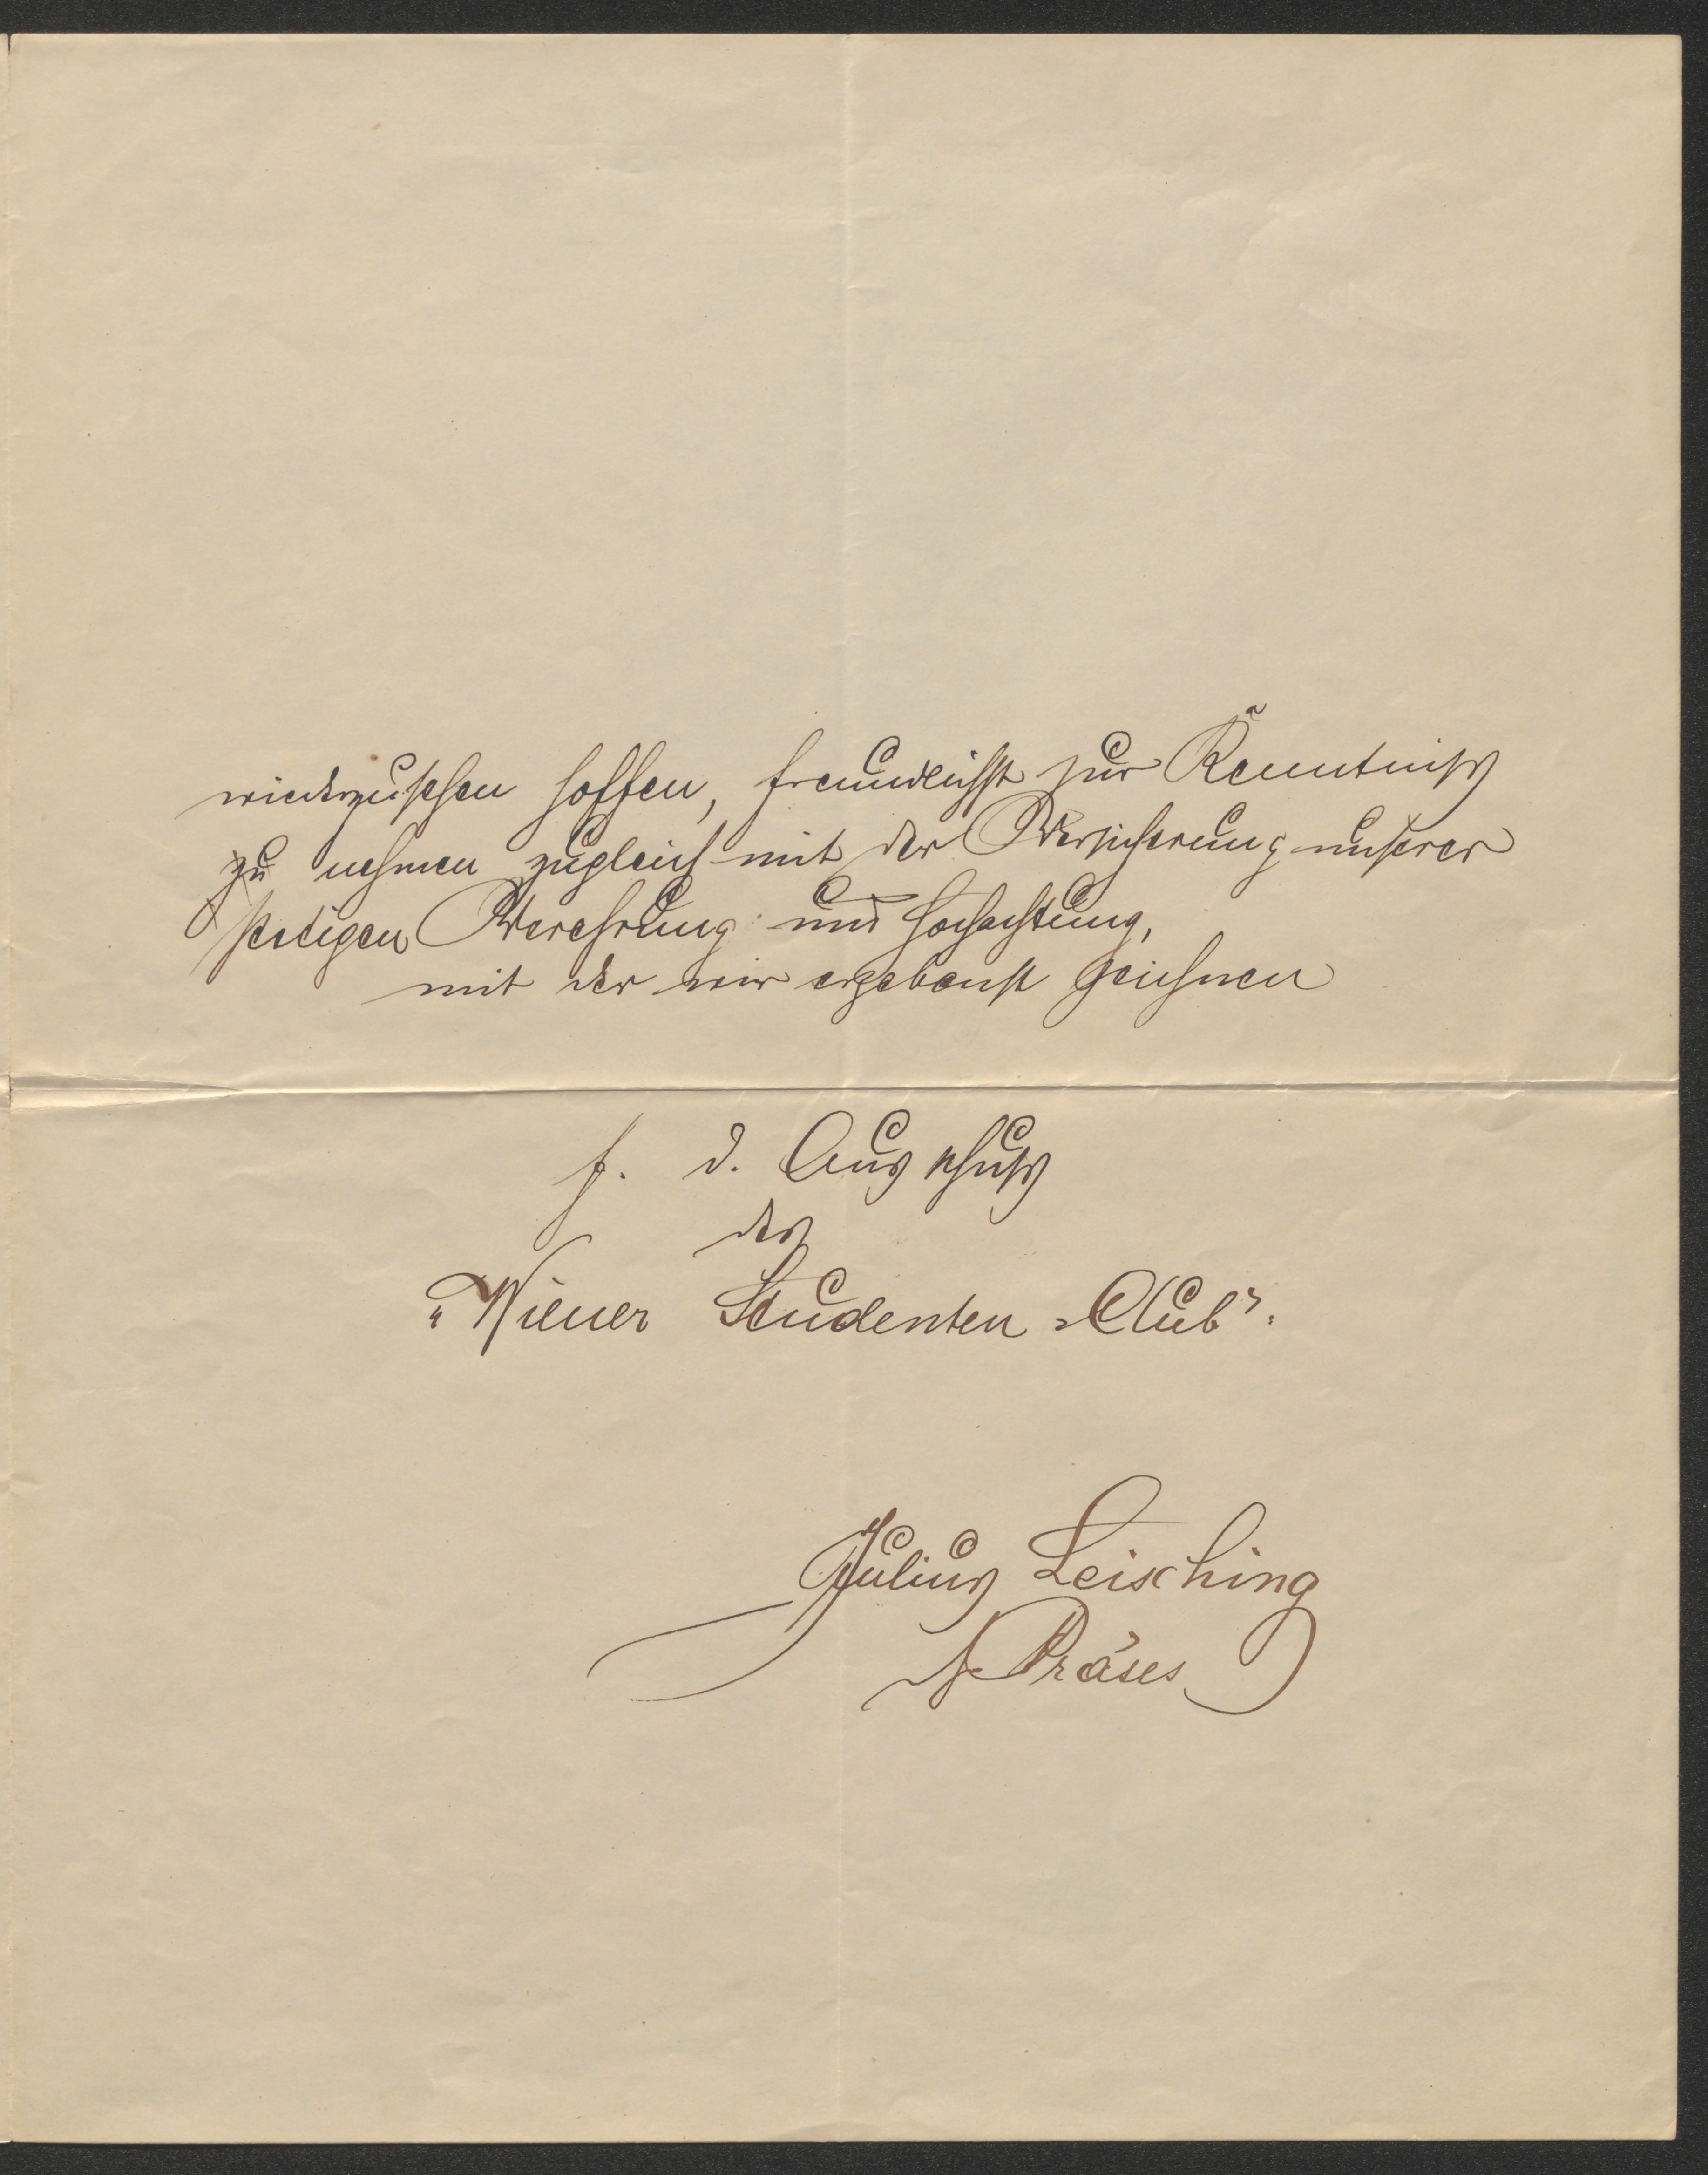 wiederzusehen hoffen, freundlichst zur Kenntniß
zu nehmen zugleich mit der Versicherung unserer
stetigen Verehrung und Hochachtung,
mit der wir ergebenst zeichnen
f. d. Ausschuß
des
„Wiener Studenten-Club".
Julius Leisching
Präses